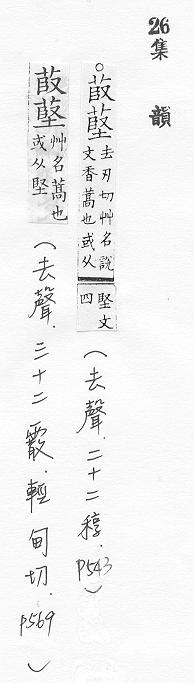 26 集韻
○菣藖去刃切艸名說文香蒿也或从堅文四(去聲.二十二稕.p543)
菣藖艸名蒿也或从堅(去聲.三十二霰.輕甸切.p569)